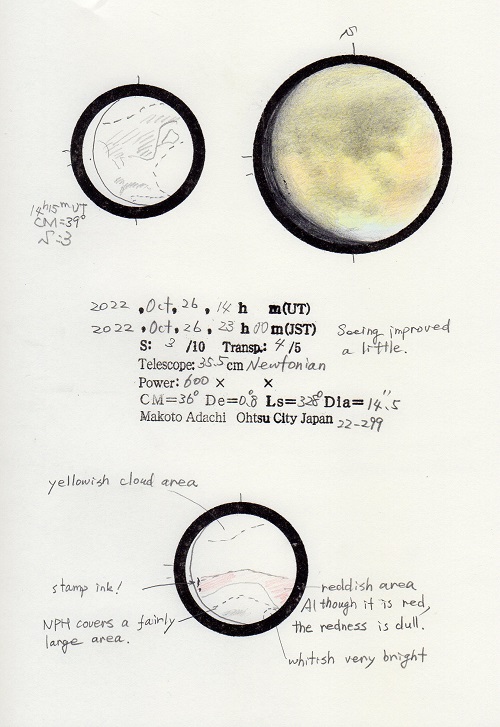 S
14h15m UT
CM=39°
S=3
2022 , Oct, 26 , 14 h m(UT)
2022 , Oct, 26 , 23 h 00 m(JST)
Seeing improved
a little.
S: 3 /10 Transp.: 4 /5
Telescope: 35.5cm Newtonian
Power: 600 × ×
CM=36° De=0.8° Ls=328° Dia=14".5
Makoto Adachi Ohtsu City Japan 22-299
yellowish cloud area
stamp ink!
reddish area
Although it is red,
the redness is dull.
NPH covers a fairly
large area.
whitish very bright